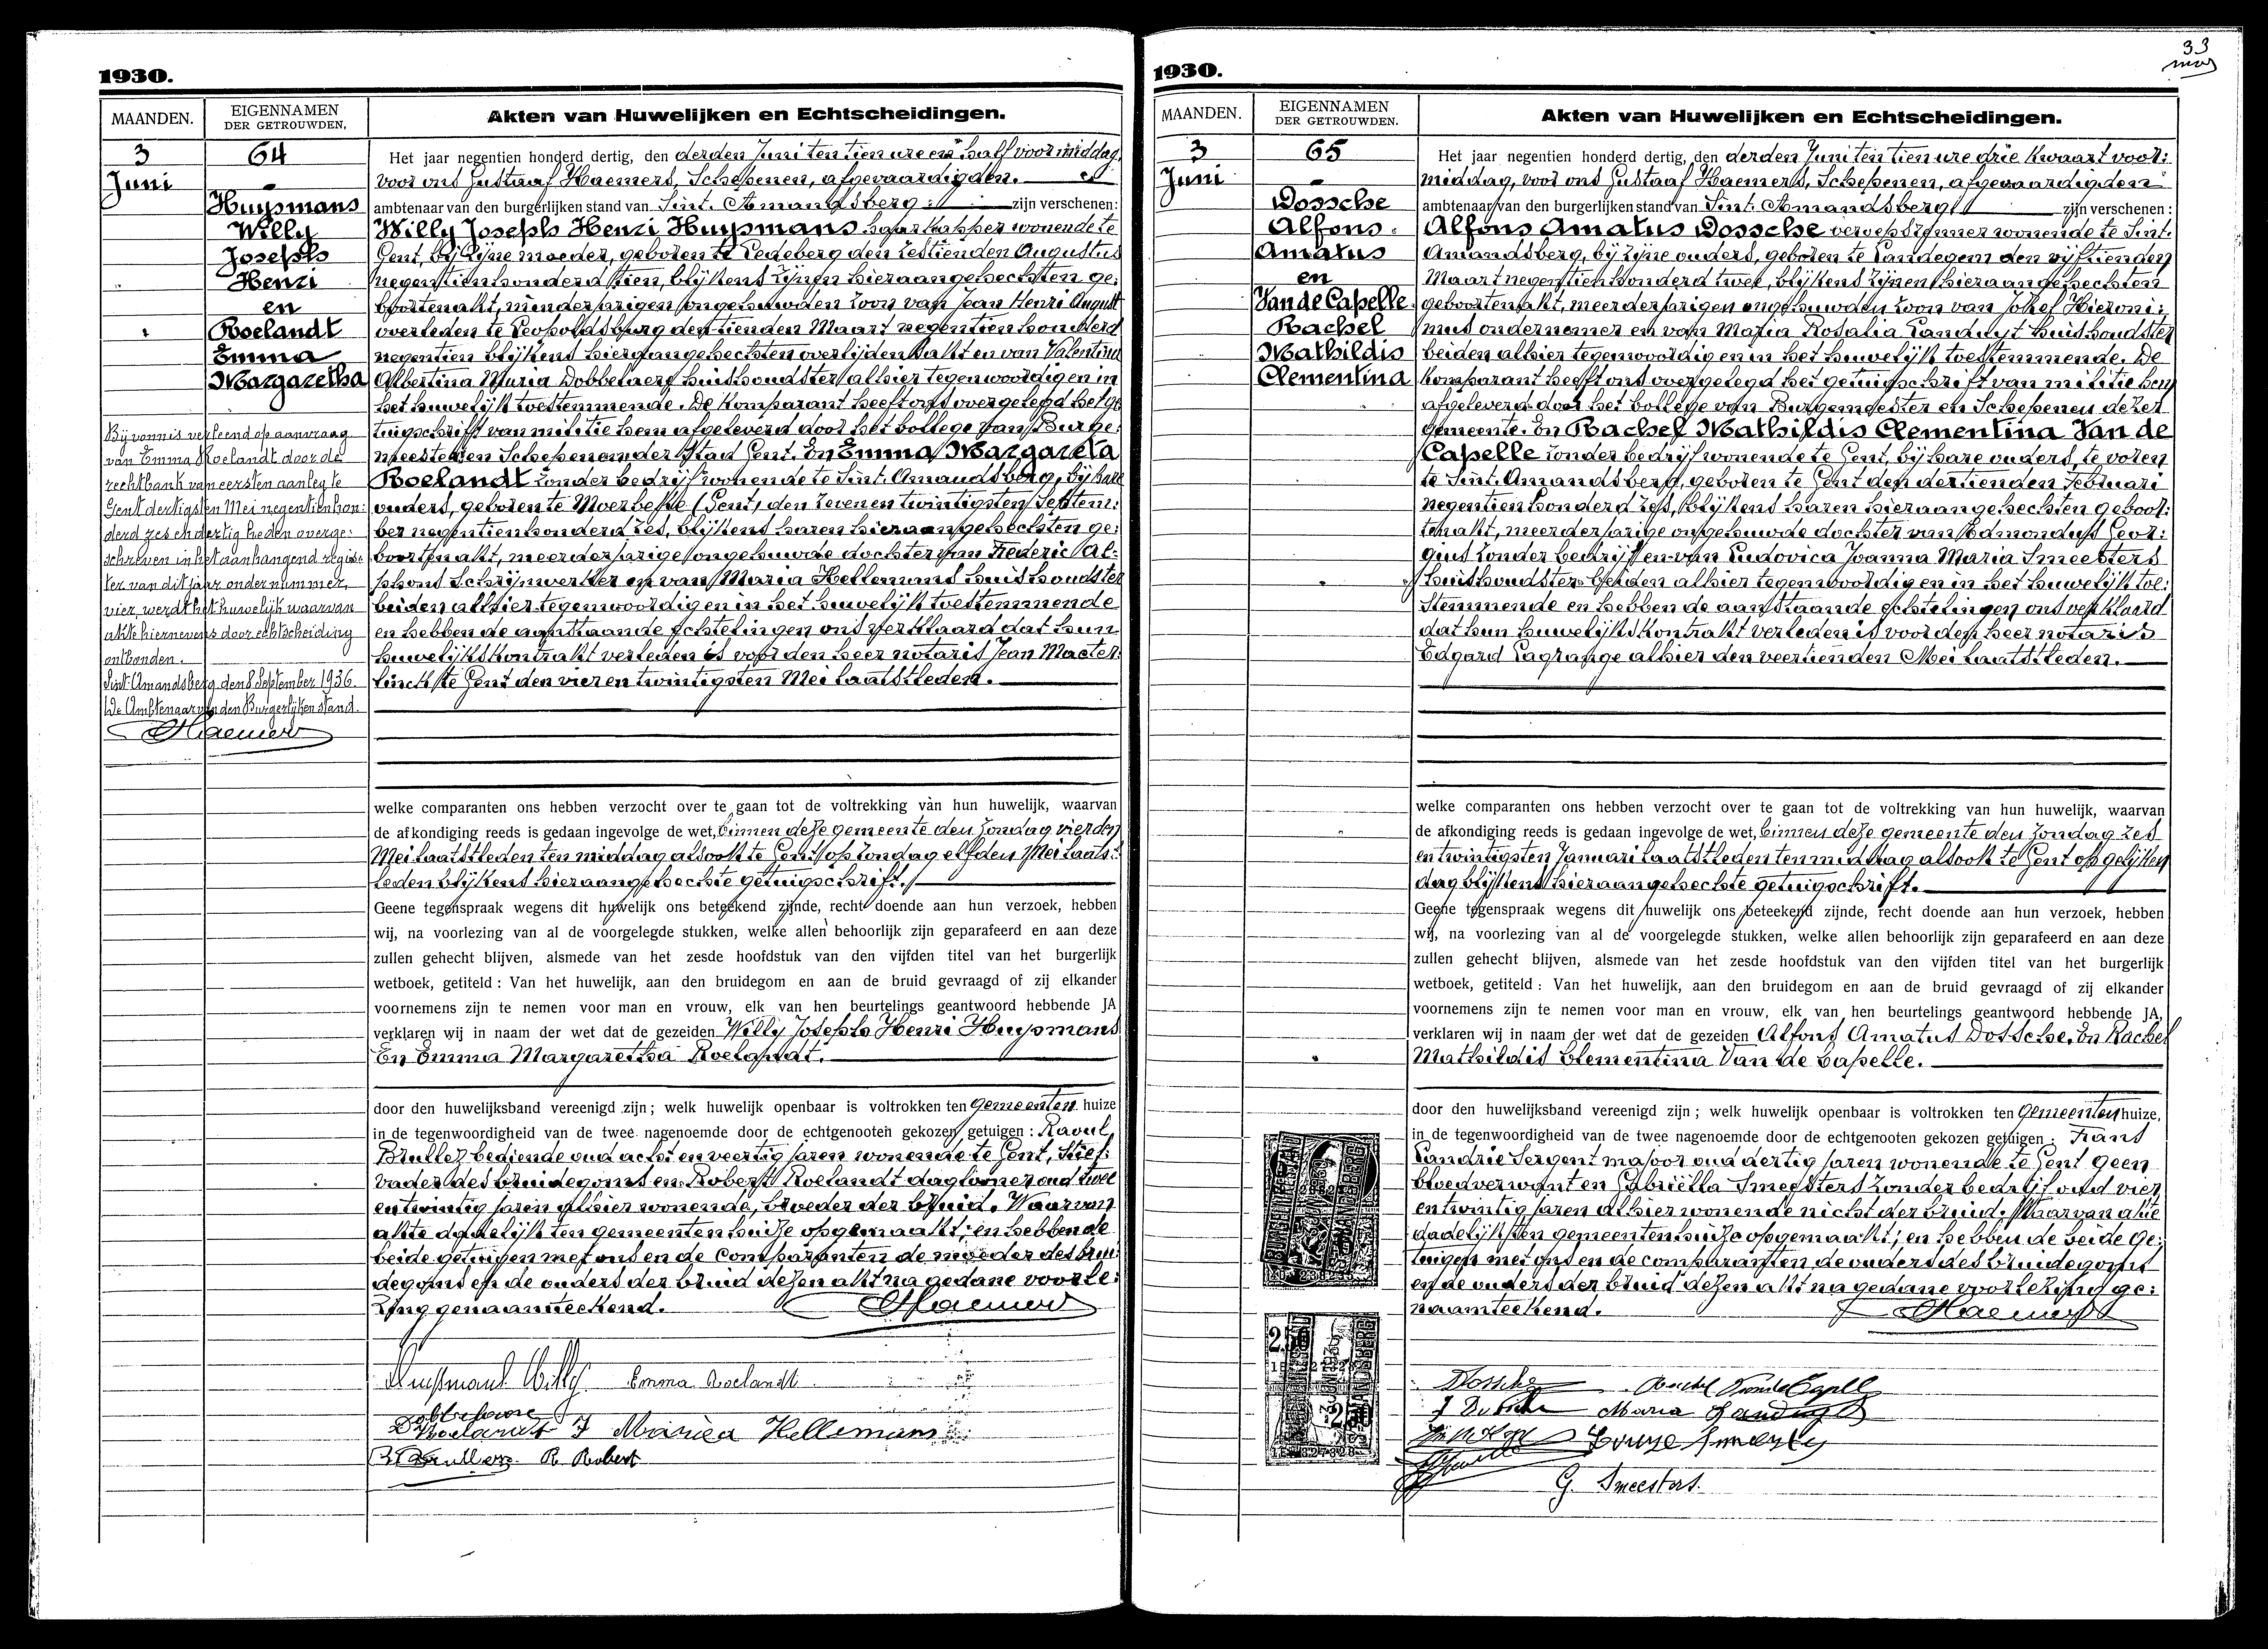 1930.
MAANDEN.
EIGENNAMEN
DER GETROUWDEN.
Akten van Huwelijken en Echtscheidingen.
3
Juni
64
Huysmans
Willy
Joseph
Henri
en
Roelandt
Emma
Margaretha
Bij vonnis verleend op aanvraag
van Emma Roelandt door de
rechtbank van eersten aanleg te
Gent dertigsten Mei negentien hon:
derd zes en dertig heden overge:
schreven in het aanhangend regis:
ter van dit jaar onder nummer
vier, werdt het huwelijk waarvan
akte hiernevens door echtscheiding
ontbonden.
Sint Amandsberg, den 8 September 1936.
De Ambtenaar van den Burgerlijken stand.
Haemers
Het jaar negentien honderd dertig, den derden Juni ten tien ure en half voormiddag,
voor ons Gustaaf Haemers, Schepenen, afgevaardigden
ambtenaar van den burgerlijken stand van Sint. Amandsberg zijn verschenen:
Willy Joseph Henri Huysmans haarkapper wonende te
Gent, bij zijne moeder, geboren te Ledeberg den zestienden Augustus
negentienhonderd tien, blijkens zijnen hieraangehechten ge:
boortenakt, minderjarigen ongehuwden zoon van Jean Henri August
overleden te Leopoldsburg den tienden Maart negentienhonderd
negentien blijkens hieraangehechten overlijdenakt en van Valentina
Albertina Maria Dobbelaere huishoudster alhier tegenwoordig en in
het huwelijk toestemmende. De komparant heeft ons overgelegd het ge
tuigschrift van militie hem afgeleverd door het Collège van Burge:
meester en Schepenen der stad Gent. En Emma Margareta
Roelandt zonder bedrijf wonende te Sint. Amandsberg, bij hare
ouders, geboren te Moerbeke (Gent) den zeven en twintigsten Septem:
ber negentienhonderd zes, blijkens haren hieraangehechten ge:
boortenakt, meerderjarige ongehuwde dochter van Frederic Al:
phons Schrijnwerker en van Maria Hellemans huishoudster
beiden alhier tegenwoordig en in het huwelijk toestemmende
en hebben de aanstaande echtelingen ons verklaard dat hun
huwelijkskontrakt verleden is voor den heer notaris Jean Maeter
linck te Gent den vier en twintigsten Mei laatstleden.
welke comparanten ons hebben verzocht over te gaan tot de voltrekking van hun huwelijk, waarvan
de afkondiging reeds is gedaan ingevolge de wet, binnen deze gemeente den Zondag vierden
Mei laatstleden ten middag alsook te Gent op Zondag elfden Mei laatst:
leden blijkens hieraangehechte getuigschrift.
Geene tegenspraak wegens dit huwelijk ons beteekend zijnde, recht doende aan hun verzoek, hebben
wij, na voorlezing van al de voorgelegde stukken, welke allen behoorlijk zijn geparafeerd en aan deze
zullen gehecht blijven, alsmede van het zesde hoofdstuk van den vijfden titel van het burgerlijk
wetboek, getiteld : Van het huwelijk, aan den bruidegom en aan de bruid gevraagd of zij elkander
voornemens zijn te nemen voor man en vrouw, elk van hen beurtelings geantwoord hebbende JA
verklaren wij in naam der wet dat de gezeiden Willy Joseph Henri Huysmans
En Emma Margaretha Roelandt.
door den huwelijksband vereenigd zijn ; welk huwelijk openbaar is voltrokken ten Gemeenten huize
in de tegenwoordigheid van de twee nagenoemde door de echtgenooten gekozen getuigen : Raoul
Bruller bediende oud acht en veertig jaren wonende te Gent, Stief:
vader des bruidegoms en Robert Roelandt daglooner oud twee
en twintig jaren alhier wonende, broeder der bruid. Waarvan
akte dadelijk ten gemeentenhuize opgemaakt; en hebben de
beide getuigen met ons en de Comparanten de moeder des brui
degoms en de ouders der bruid dezen akt na gedane voorle:
zing genaamteekend.
Haemers
Huysmans Willy Emma Roelandt
Roelandt F Maria Hellemans
R Robert
33
1930.
MAANDEN.
EIGENNAMEN
DER GETROUWDEN.
Akten van Huwelijken en Echtscheidingen.
3
Juni
65
Dossche
Alfons
Amatus
en
Van de Capelle
Rachel
Mathildis
Clementina
Het jaar negentien honderd dertig, den derden Juni ten tien ure drie kwaart voor:
middag, voor ons Gustaaf Haemers, Schepenen, afgevaardigden
ambtenaar van den burgerlijken stand van Sint. Amandsberg zijn verschenen :
Alfons Amatus Dossche wonende te Sint.
Amandsberg, bij zijne ouders, geboren te Landegem den vijftienden
Maart negentienhonderd twee, blijkens zijnen hieraangehechten
geboortenakt, meerderjarigen ongehuwden zoon van Josef Hieroni:
mus ondernemer en van Maria Rosalia Landuyt huishoudster
beiden alhier tegenwoordig en in het huwelijk toestemmende. De
komparant heeft ons overgelegd het getuigschrift van militie hem
afgeleverd door het Collège van Burgemeester en Schepenen dezer
gemeente. En Rachel Mathildis Clementina Van de
Capelle zonder bedrijf wonende te Gent, bij hare ouders, te voren
te Sint. Amandsberg, geboren te Gent den dertienden Februari
negentienhonderd zes, blijkens haren hieraangehechten geboor:
tenakt, meerderjarige ongehuwde dochter van Edmondus Geor:
gius zonder bedrijf en van Ludovica Joanna Maria Smeesters
huishoudster beiden alhier tegenwoordig en in het huwelijk toe:
stemmende en hebben de aanstaande echtelingen ons verklaard
dat hun huwelijkskontrakt verleden is voor den heer notaris
Edgard Lagrange alhier den veertienden Mei laatstleden.
welke comparanten ons hebben verzocht over te gaan tot de voltrekking van hun huwelijk, waarvan
de afkondiging reeds is gedaan ingevolge de wet, binnen deze gemeente den Zondag zes
en twintigsten Januari laatstleden ten middag alsook te Gent op gelijken
dag blijkens hieraangehechte getuigschrift.
Geene tegenspraak wegens dit huwelijk ons beteekend zijnde, recht doende aan hun verzoek, hebben
wij, na voorlezing van al de voorgelegde stukken, welke allen behoorlijk zijn geparafeerd en aan deze
zullen gehecht blijven, alsmede van het zesde hoofdstuk van den vijfden titel van het burgerlijk
wetboek, getiteld : Van het huwelijk, aan den bruidegom en aan de bruid gevraagd of zij elkander
voornemens zijn te nemen voor man en vrouw, elk van hen beurtelings geantwoord hebbende JA,
verklaren wij in naam der wet dat de gezeiden Alfons Amatus Dossche. En Rachel
Mathildis Clementina Van de Capelle.
door den huwelijksband vereenigd zijn ; welk huwelijk openbaar is voltrokken ten Gemeenten huize,
in de tegenwoordigheid van de twee nagenoemde door de echtgenooten gekozen getuigen : Frans
Landrie Sergent majoor oud dertig jaren wonende te Gent geen
bloedverwant en Gabriëlla Smeesters zonder bedrijf oud vier
en twintig jaren alhier wonende nicht der bruid. Waarvan akte
dadelijk ten gemeentenhuize opgemaakt; en hebben de beide ge:
tuigen met ons en de comparanten, de ouders des bruidegoms
en de ouders der bruid dezen akt na gedane voorlezing ge:
naamteekend.
Haemers
Dossche Rachel Van de Capelle
J Dossche Maria Landuyt
Louise Smeesters
G. Smeesters.